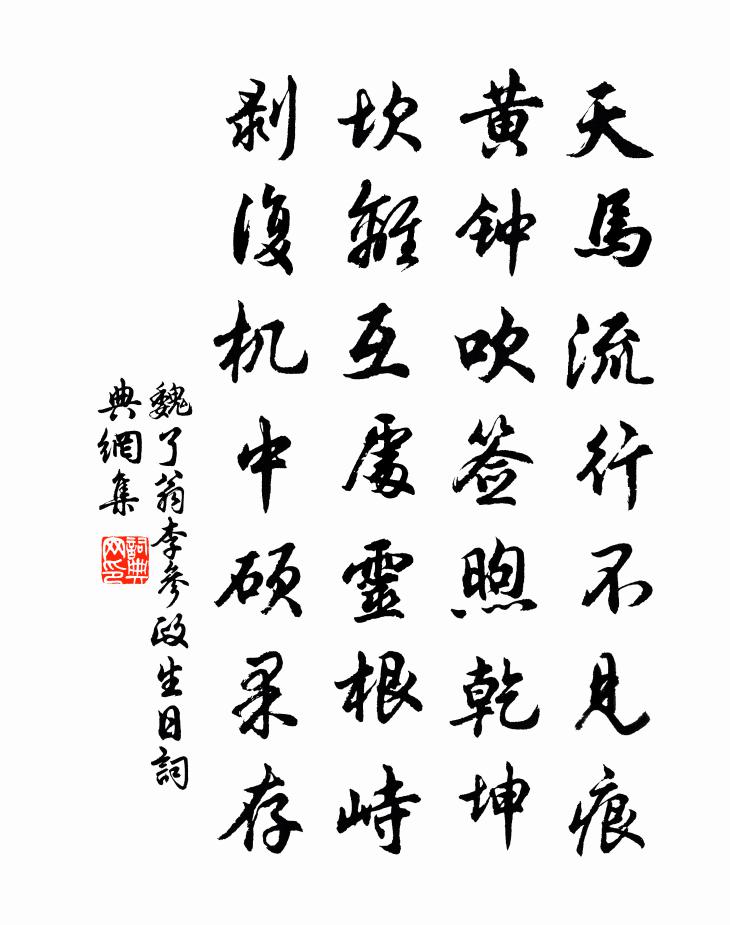 天馬流行不見痕
黄钟吹签煦乾坤
坎離互處靈根峙
剥復机中硕果存
魏了翁李參政生日詞
典網集
詞典网印